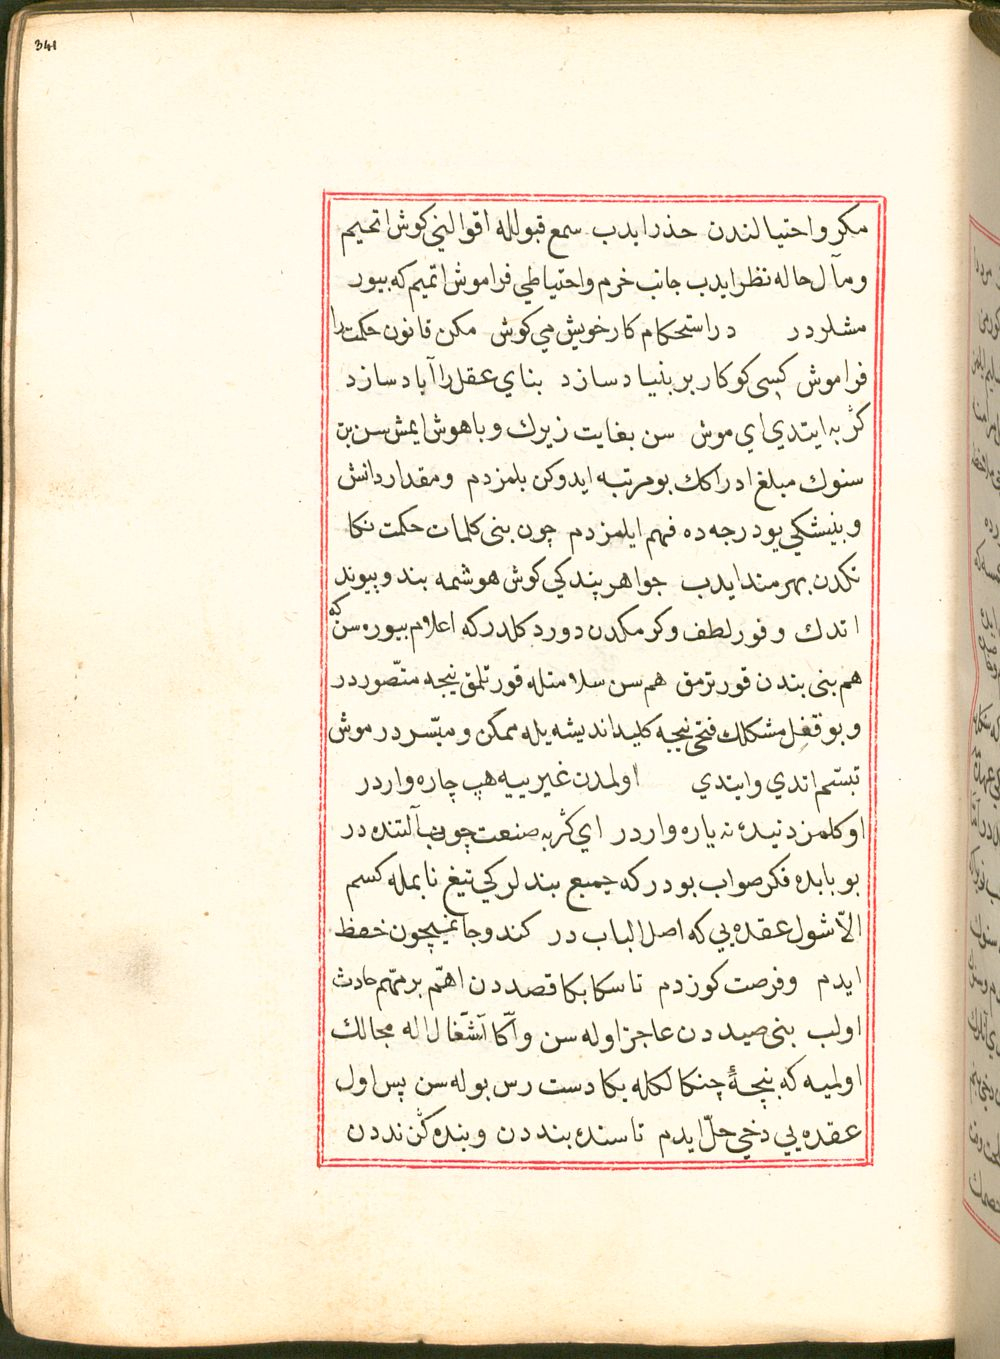 341
مكر و احتيالندن حذر ايدب سمع قبولله اقوالني كوش اتميم
و مآل حاله نظر ايدب جانب خرم و احتياطي فراموش اتميم كه بيور
مشلردر در استحكام كار خويش مي كوش مكن قانون حكمت را
فراموش كسى كو كار بر بنياد سازد بناي عقل را آباد سازد
كربه ايتدي اي موش سن بغايت زيرك و باهوش ايمش سن بن
سنوك مبلغ ادراكك بو مرتبه ايدوكن بلمزدم و مقدار دانش
و بنيشكي بو درجه ده فهم ايلمزدم چون بنى كلمات حكمت
نكدن بهرمند ايدب جواهر پندكي كوش هوشمه بند و پيوند
اتدك و فور لطف و كرمكدن دورد كلدر كه اعلام بيوره سن كه
هم بنى بندن قورترمق هم سن سلامتله قورتلمق نيجه متصوردر
و بو قفل مشكلك فتحى نيجه كليد انديشه يله ممكن و ميسّر در موش
تبسّم اندي و ايتدي اولمدن غيرييه هپ چاره واردر
اوكلمز دنيده نه ياره واردر اي كربه صنعت چون بآلتنده در
بو بابده فكر صواب بودر كه جميع بندلركي تيغ نابمله كسم
الاّ شول عقده يي كه اصل الباب در كندو جانميچون حفظ
ايدم و فرصت كوزدم تا سكا بكا قصددن اهمّ بر مهّم حادث
اولب بنى صيددن عاجز اوله سن و آكا آشتغال اله مجالك
اولميه كه پنجهٔ چنكالكله بكا دست رس بوله سن پس اول
عقده يي دخي حلّ ايدم تا سنده بنددن و بنده كزنددن